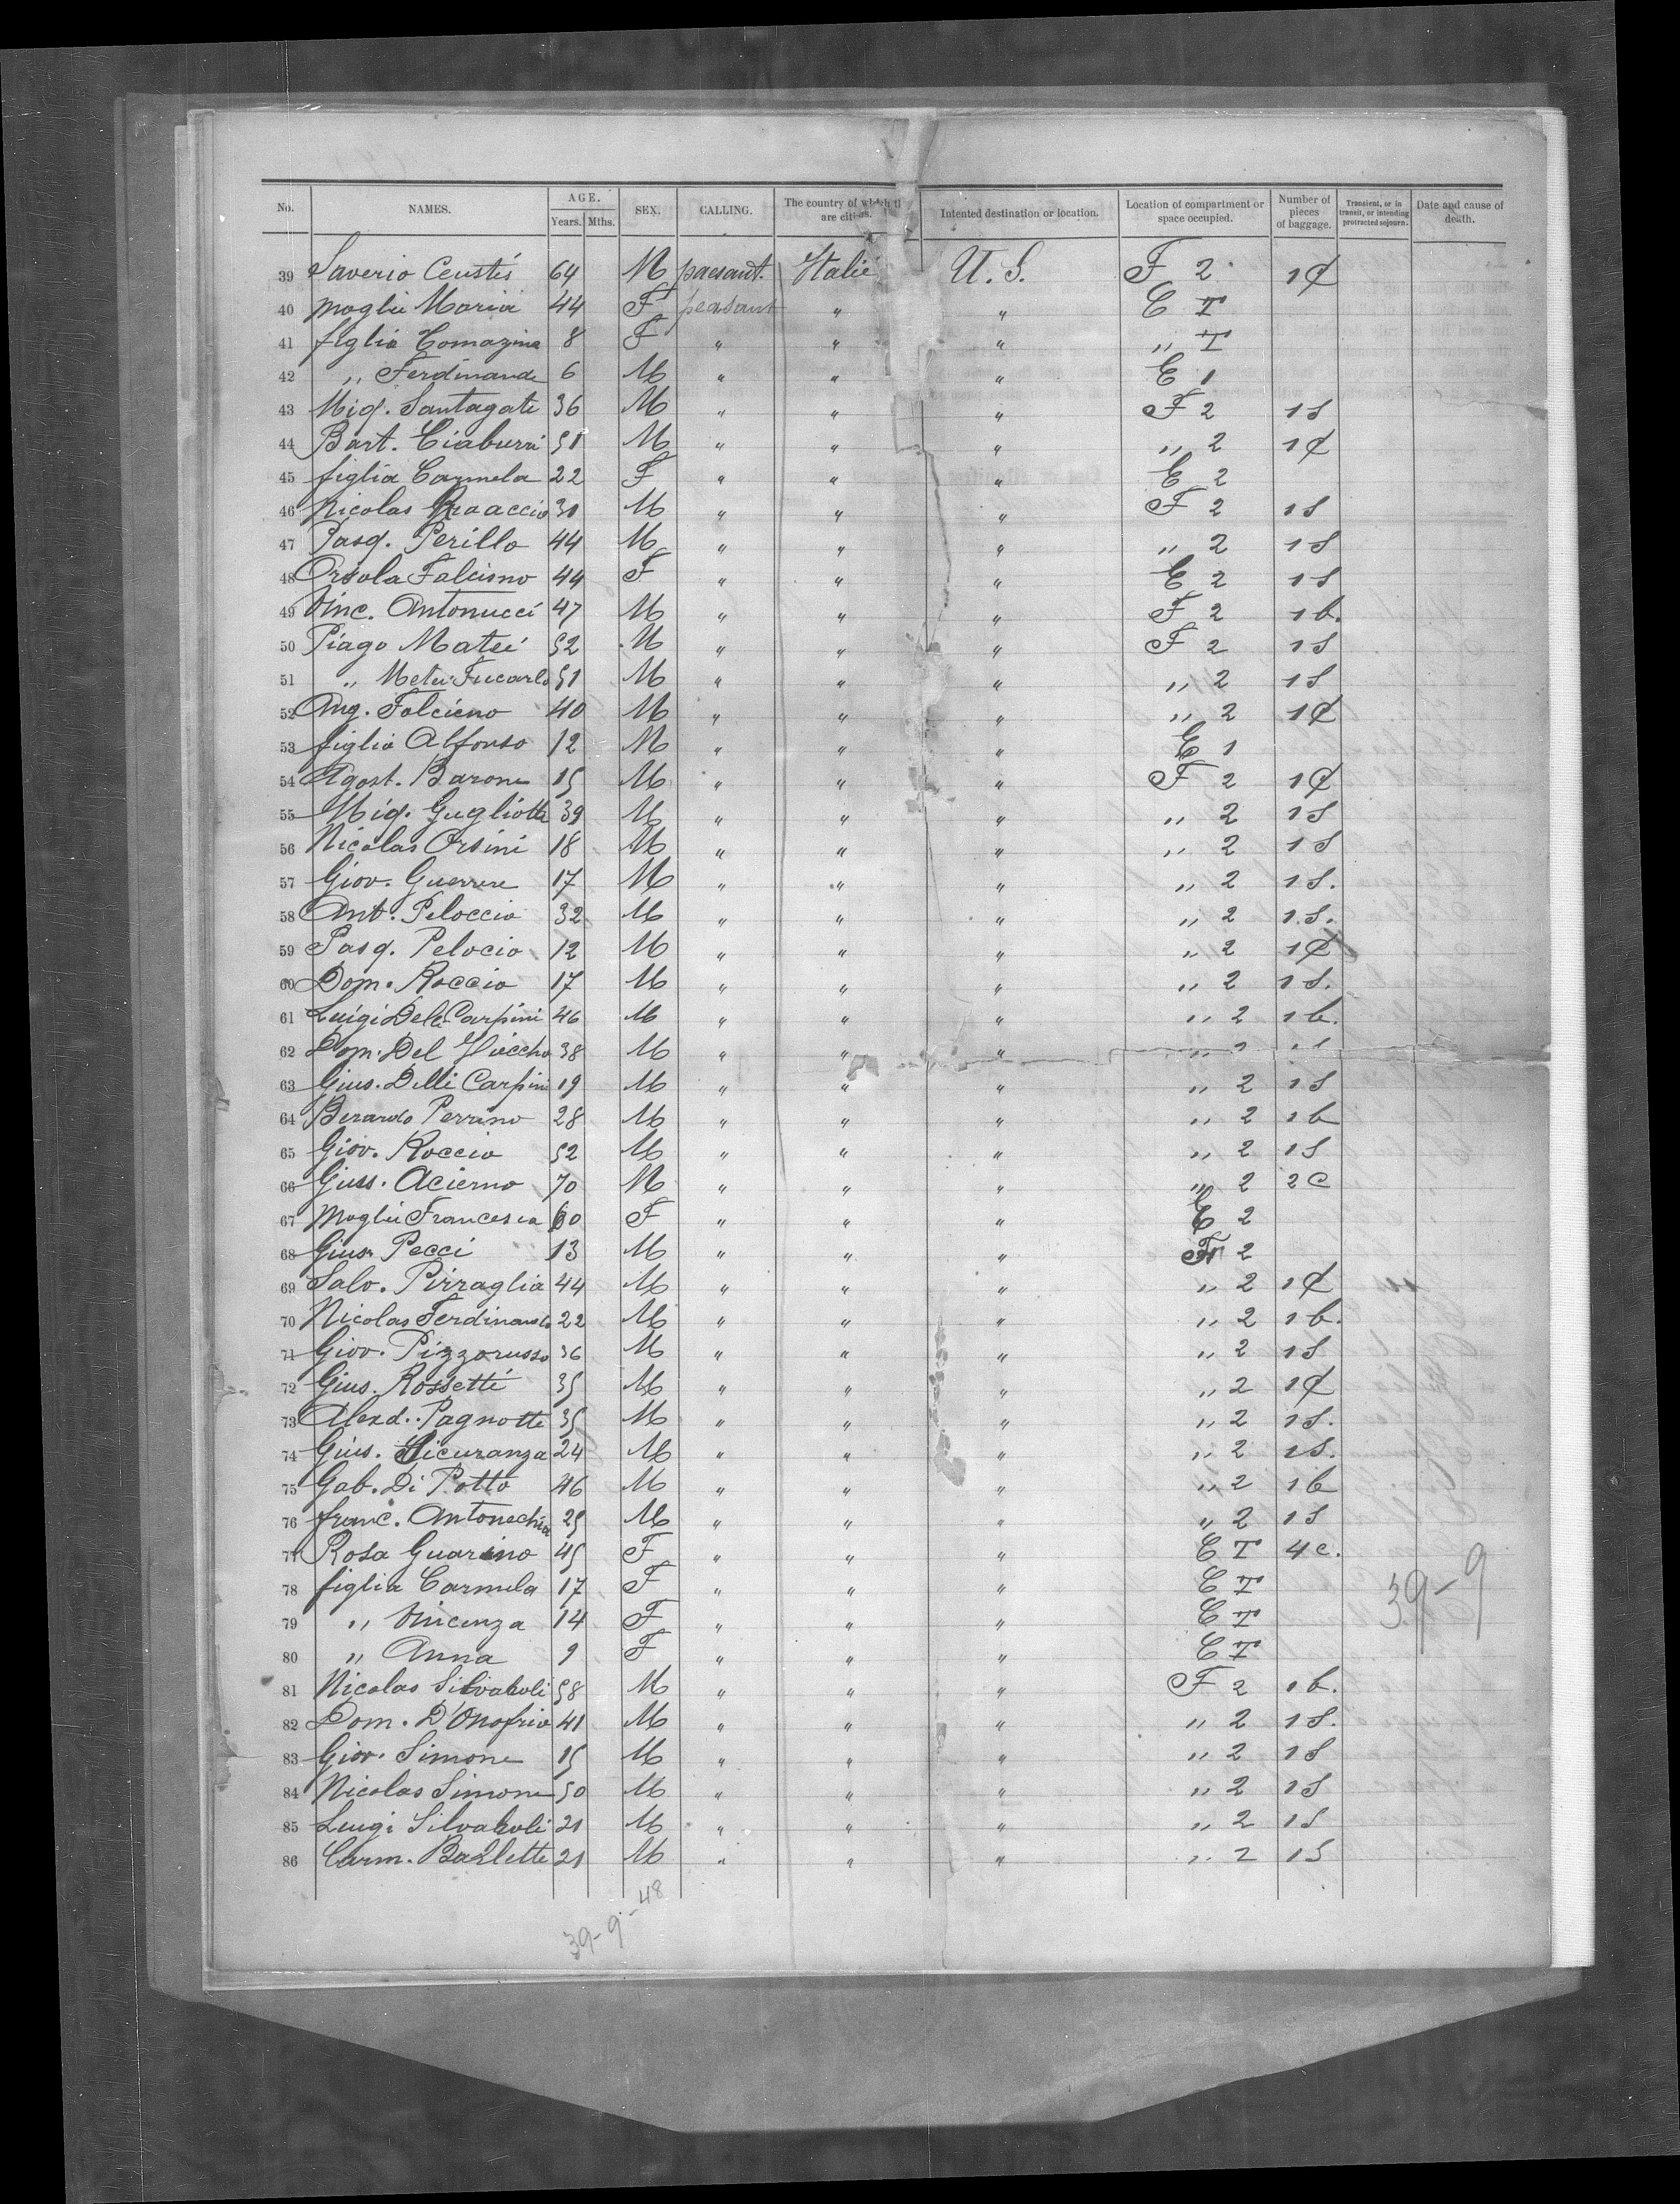 No. NAMES. AGE. Years. Mths. SEX. CALLING. The country of which are citizens. Intented destination or location. Location of compartment or space occupied. Number of pieces of baggage. Transient, or in transit, or intending protracted sojourn. Date and cause of death.
39 Saverio Ceustis 64 M paesant. Italie U. S. F 2 1 ₵
40 moglie Maria 44 F peasant " " E I
41 figlia Tomazina 8 F " " " " I
42 " Ferdinande 6 M " " " E 1
43 Mig. Santagate 36 M " " " F 2 1 S
44 Bart. Ciaburri 51 M " " " " 2 1 ₵
45 figlia Carmela 22 F " " " E 2
46 Nicolas 30 M " " " F 2 1 S
47 Pasq. Perillo 44 M " " " " 2 1 S
48 Orsola Falcisno 44 F " " " E 2 1 S
49 Vinc. Antonucci 47 M " " " F 2 1 b.
50 Piago Matei 52 M " " " F 2 1 S
51 " Metei Fucarlo 51 M " " " " 2 1 S
52 Ang. Falcieno 40 M " " " " 2 1 ₵
53 figlio Alfonso 12 M " " " E 1
54 Agost. Barone 15 M " " " F 2 1 ₵
55 Mig. Gugliotta 39 M " " " " 2 1 S
56 Nicolas Orsini 18 M " " " " 2 1 S
57 Giov. Guerrere 17 M " " " " 2 1 S.
58 Ant. Peloccio 32 M " " " " 2 1 S.
59 Pasq. Pelocio 12 M " " " " 2 1 ₵
60 Dom. Roccio 17 M " " " " 2 1 S.
61 Luigi Delli Carpini 46 M " " " " 2 1 b.
62 Dom. Del 38 M " " " "
63 Gius. Delli Carpini 19 M " " " " 2 1 S
64 Berardo Perrino 28 M " " " " 2 1 b
65 Giov. Roccio 52 M " " " " 2 1 S
66 Guss. Acierno 70 M " " " " 2 2 C
67 Moglie Francesca 60 F " " " E 2
68 Gius. Pecci 13 M " " " F 2
69 Salv. Pirraglia 44 M " " " " 2 1 ₵
70 Nicolas Ferdinando 22 M " " " " 2 1 b.
71 Giov. Pizzorusso 36 M " " " " 2 1 S
72 Gius. Rossetti 35 M " " " " 2 1 ₵
73 Alexd. Pagnotte 35 M " " " " 2 1 S.
74 Gius. Sicuranza 24 M " " " " 2 1 S.
75 Gab. Di Potto 46 M " " " " 2 1 b
76 franc. Antonechia 25 M " " " " 2 1 S
77 Rosa Guarino 45 F " " " E I 4 c.
78 figlia Carmela 17 F " " " E I
39-9
79 " Vincenza 14 F " " " E I
80 " Anna 9 F " " " E I
81 Nicolas Silvaholi 58 M " " " F 2 1 b.
82 Dom. D'Onofrio 41 M " " " " 2 1 S.
83 Giov. Simone 15 M " " " " 2 1 S
84 Nicolas Simone 50 M " " " " 2 1 S
85 Luigi Silvaholi 21 M " " " " 2 1 S
86 Carm. Barlette 21 M " " " " 2 1 S
39-9-48